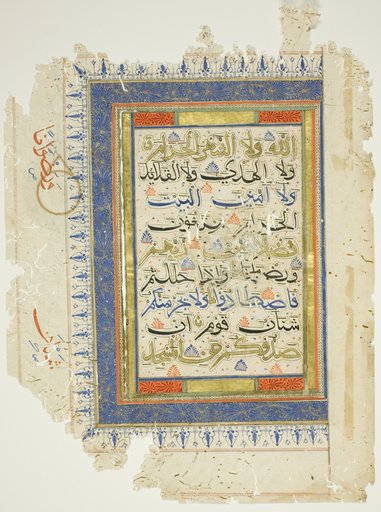 الله ولا الشهر الحرام
ولا الهدي ولا القلائد
ولا آمين البيت
الحرام يبتغون
فضلا من ربهم
ورضوانا وإذا حللتم
فاصطادوا ولا يجرمنكم
شنآن قوم أن
صدوكم عن المسجد